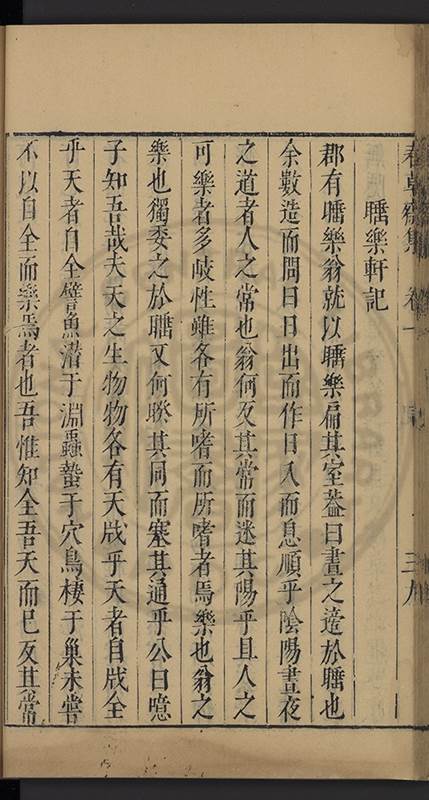 春草齋集 卷一 記 三八
𥈭樂軒記
郡有𥈭樂翁就以𥈭樂扁其室葢曰晝之遊於𥈭也
余數造而問曰日出而作日入而息順乎陰陽晝夜
之道者人之常也翁何反其常而迷其陽乎且人之
可樂者多岐性雖各有所嗜而所嗜者焉樂也翁之
樂也獨委之於𥈭又何睽其同而塞其通乎公曰噫
子知吾哉夫天之生物物各有天戕乎天者自戕全
乎天者自全譬魚潛于淵蟲蟄于穴鳥棲于巢未嘗
不以自全而樂焉者也吾惟知全吾天而已反其常